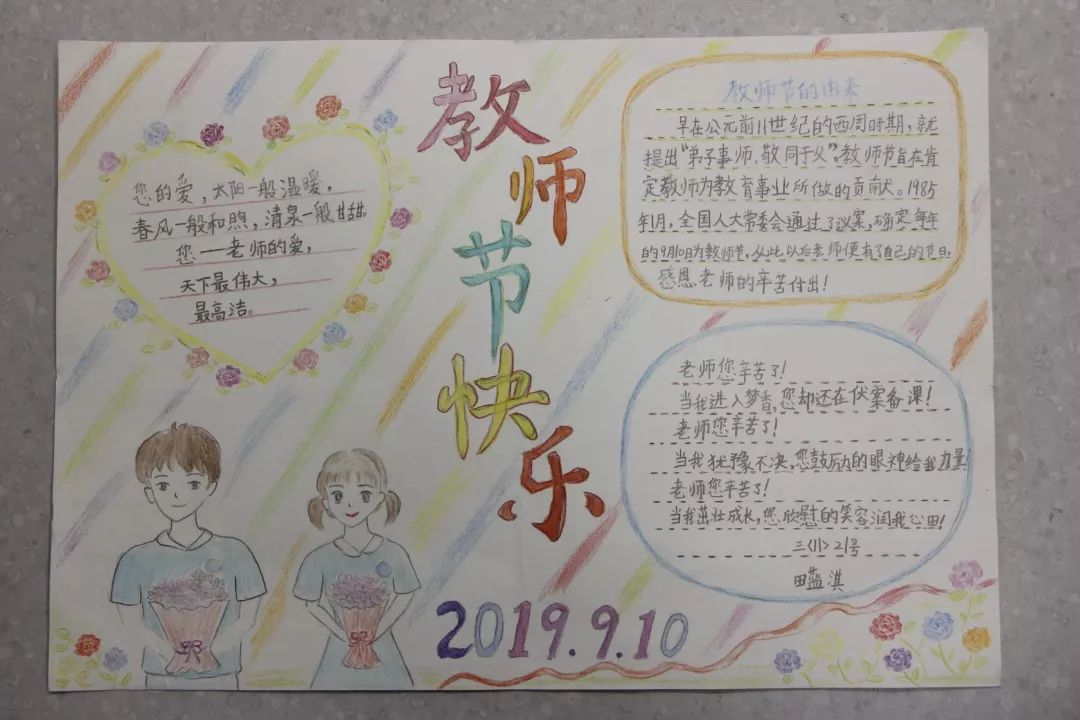 教师节快乐
您的爱，太阳一般温暖，
春风一般和煦，清泉一般甘甜。
您——老师的爱，
天下最伟大，
最高洁。
教师节的由来
早在公元前11世纪的西周时期，就
提出“弟子事师，敬同于父”。教师节旨在肯
定教师为教育事业所做的贡献。1985
年1月，全国人大常委会通过了议案，确定每年
的9月10日为教师节，从此以后老师便有了自己的节日。
感恩老师的辛苦付出！
老师您辛苦了！
当我进入梦香，您却还在伏案备课！
老师您辛苦了！
当我犹豫不决，您鼓励的眼神给我力量！
老师您辛苦了！
当我茁壮成长，您欣慰的笑容润我心田！
三〈11〉21号
田蓝淇
2019.9.10